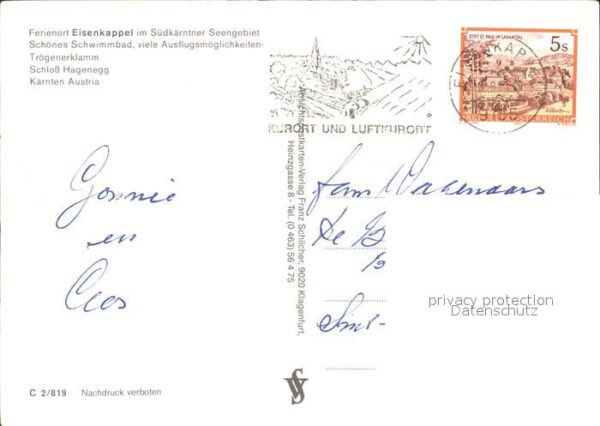 Ferienort Eisenkappel im Südkärntner Seengebiet
Schönes Schwimmbad, viele Ausflugsmöglichkeiten-
Trögenerklamm
Schloß Hagenegg
Kärnten Austria
STIFT ST. PAUL IM LAVANTTAL
5s
KURORT UND LUFTKURORT
Ansichtspostkarten-Verlag Franz Schilcher, 9020 Klagenfurt,
Heinzgasse 8 - Tel. (0 463) 56 4 75
en
Cees
fam Wagenaars
privacy protection
Datenschutz
C 2/819 Nachdruck verboten